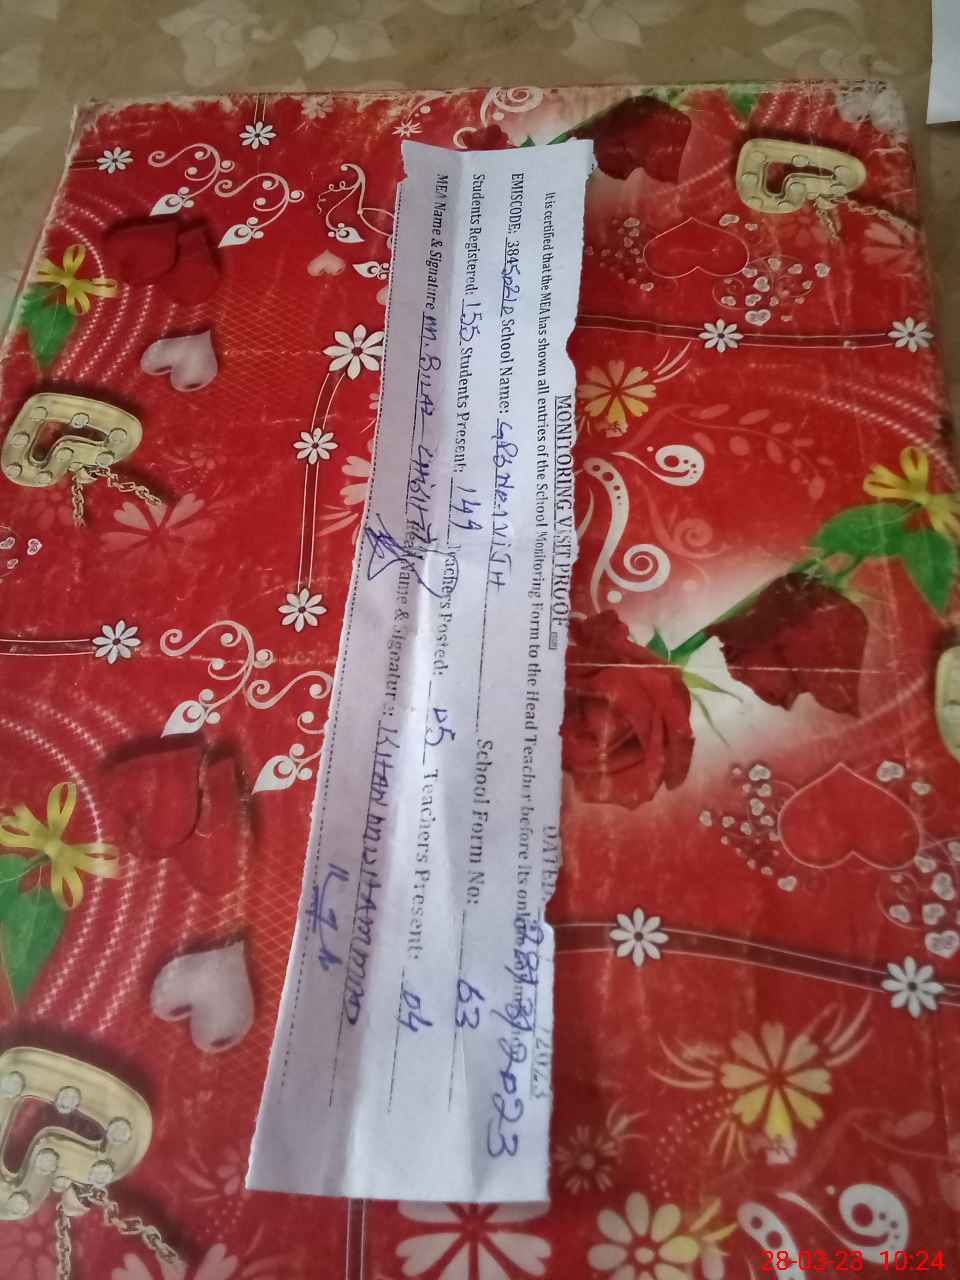 MONITORING VISIT PROOF DATED: 28/3/2023 /2023
It is certified that the MEA has shown all entries of the School Monitoring Form to the Head Teacher before its
EMISCODE: School Name: School Form No: 63
Students Registered: 155 Students Present: 149 Teachers Posted: 05 Teachers Present: 04
MEA Name & Signature M. BILAL CHISHTI Head Name & Signature: KHAN MUHAMMAD
28-03-23 10:24